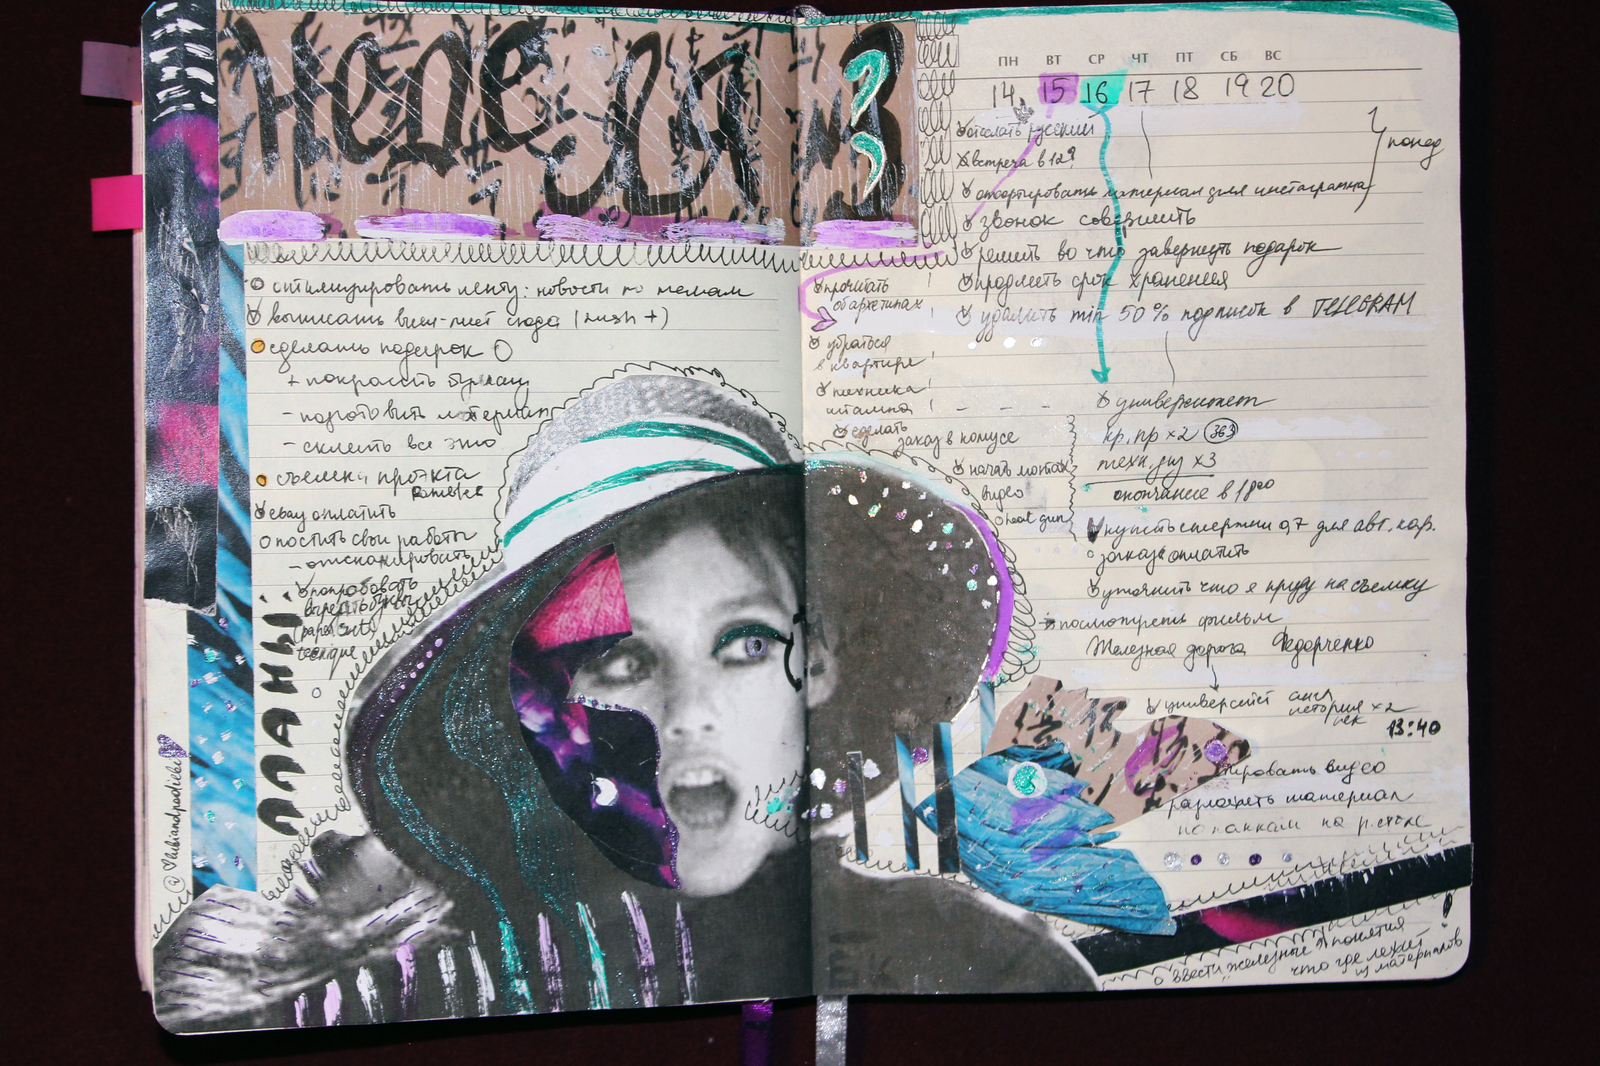 Неделя 3
ПН ВТ СР ЧТ ПТ СБ ВС
14 15 16 17 18 19 20
отослать русский
встреча в 12
отсортировать материал для инстаграма
понед
звонок совершить
решить во что завернуть подарок
продлить срок хранения
удалить min 50% подписок в TELEGRAM
стилизировать ленту: новости по
выписать виш-лист сюда (lush +)
сделать подарок
+ покрасить
- подготовить материал
- склеить все это
съемки проекта
ebay оплатить
постить свои работы
- отсканировать
попробовать
вырезать буквы
(paper cut
ПЛАНЫ:
прочитать
об архетипах !
убраться
в квартире !
техника
штампа !
сделать
заказ в комусе
начать монтаж
видео
heat gun
университет
кр. пр x2 363
техн. x3
окончание в 18:00
купить стержни 0,7 для авт. кар.
заказ оплатить
уточнить что я приду на съемку
посмотреть фильм
Железная дорога Федорченко
университет англ
история x2
13:40
видео
разложить материал
по папкам на р.столе
ввести "железные" понятия
что где лежит
из материалов